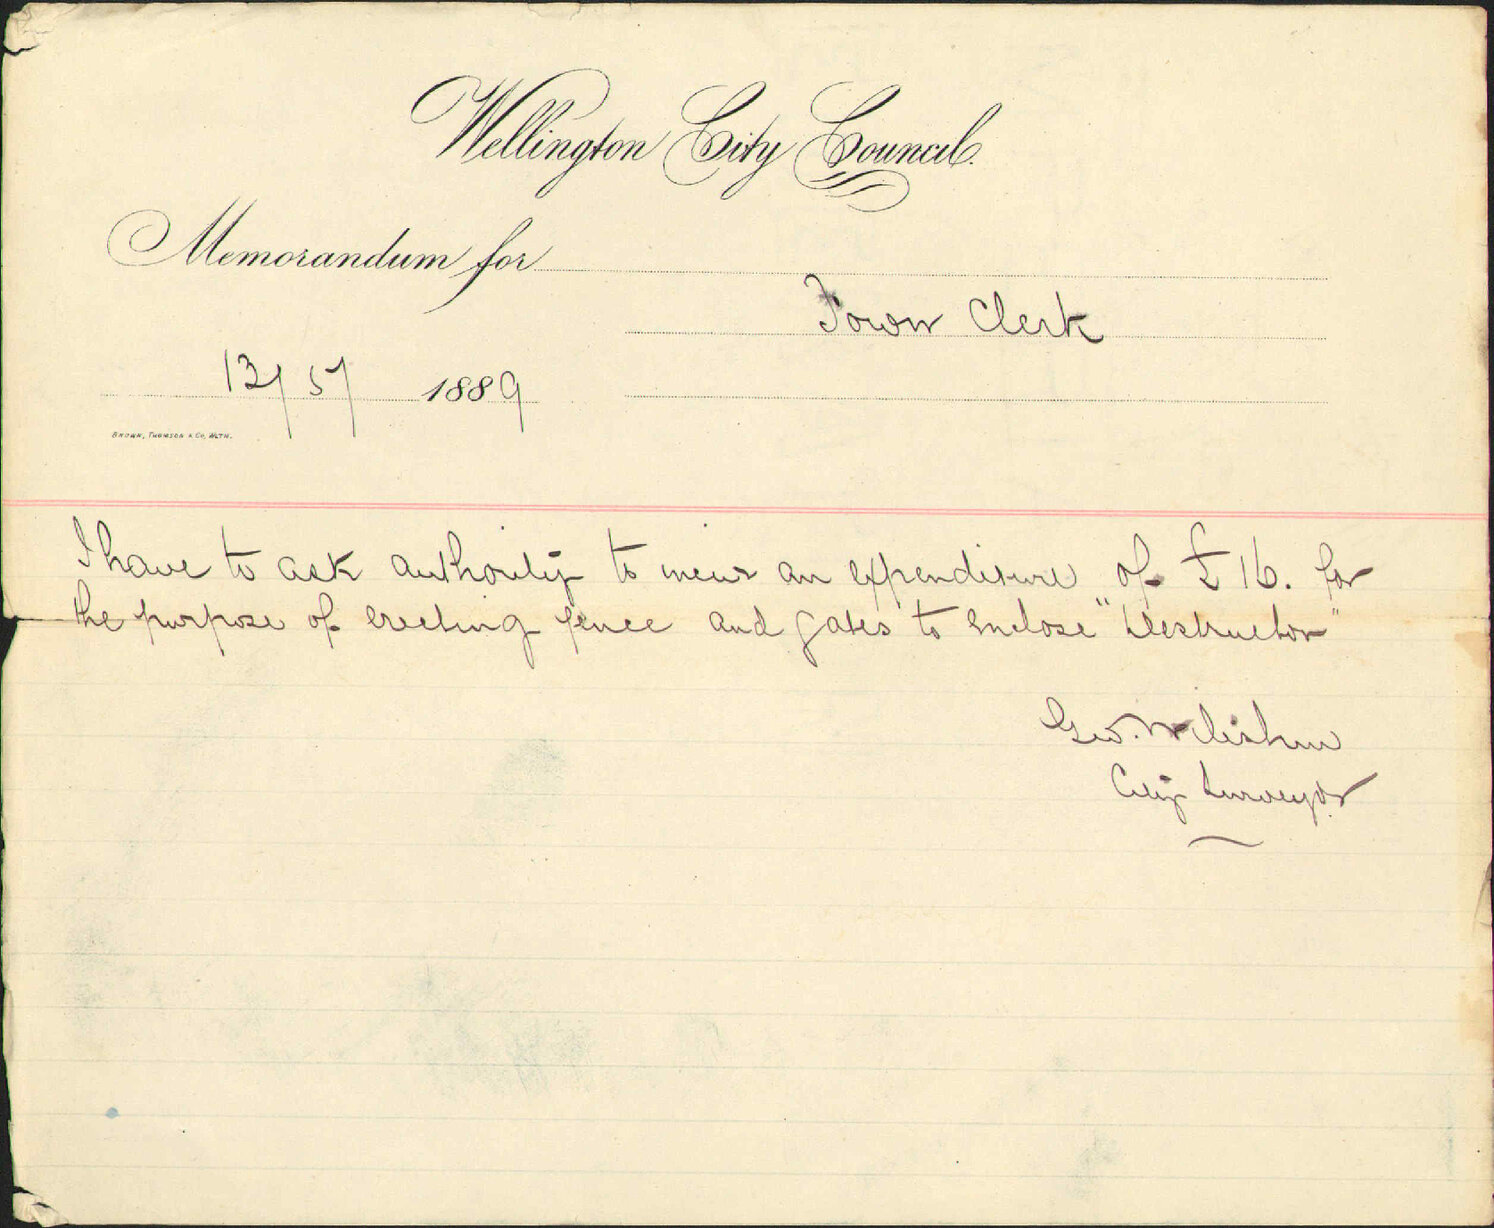 Wellington City Council.
Memorandum for
Town Clerk
13/5/ 1889
Brown, Thomson & Co, Wgtn.
I have to ask authority to incur an expenditure of £16. for
the purpose of erecting fence and gates to enclose "Destructor"
Geo. Wiltshire
City Surveyor